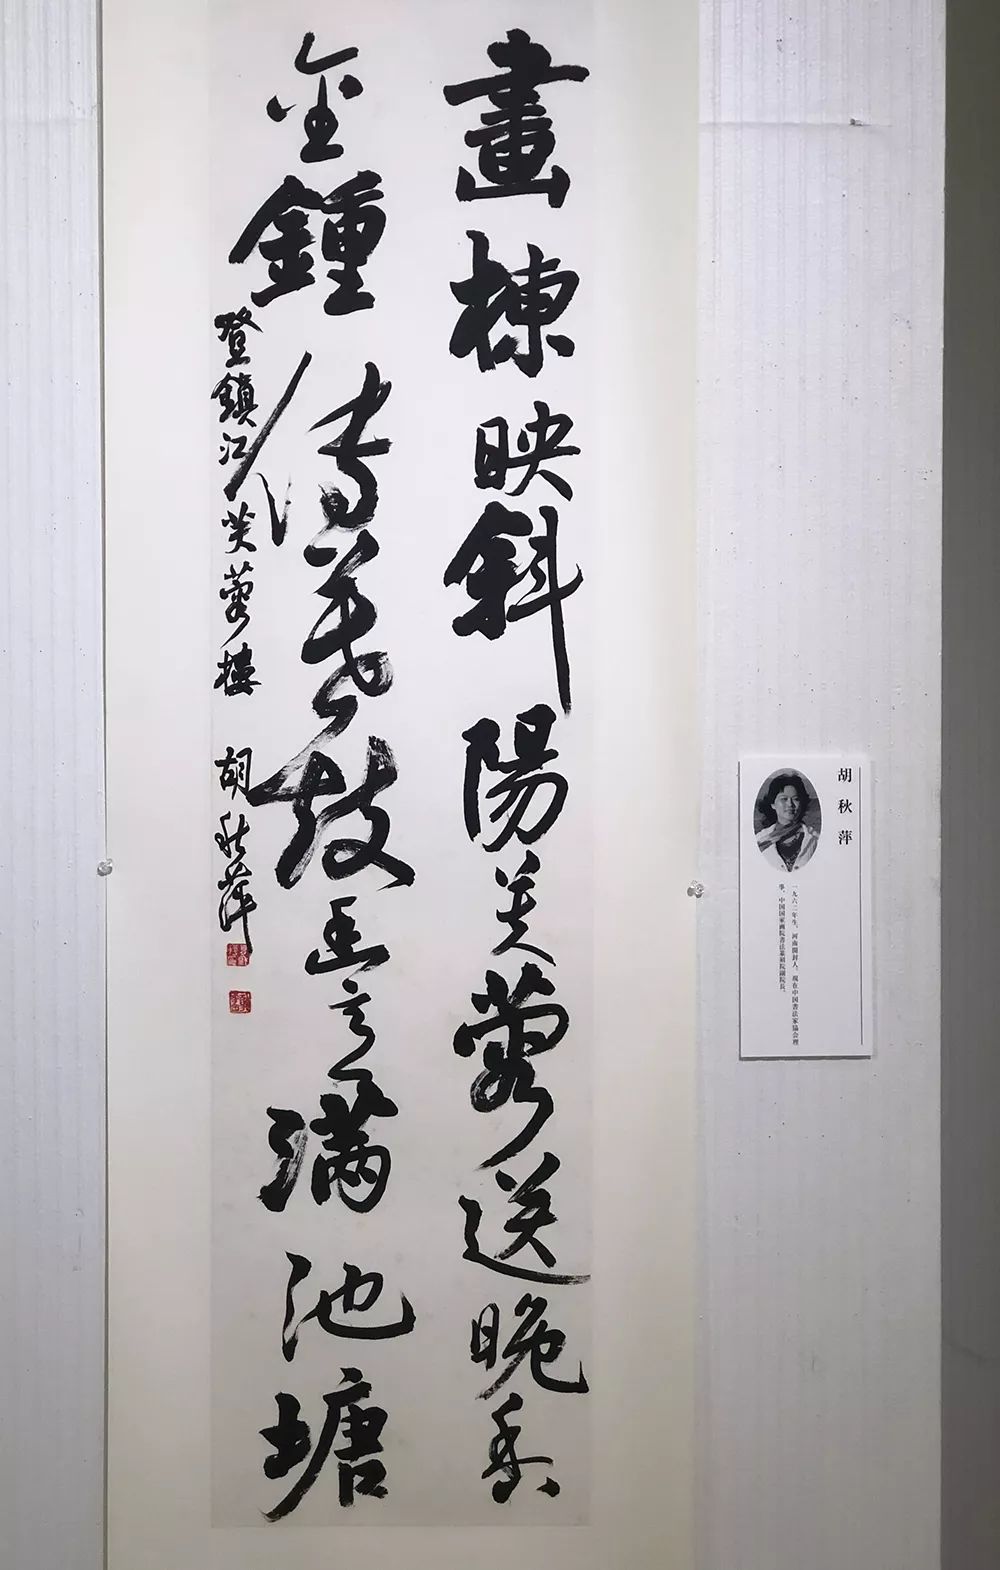 畫棟映斜陽芙蓉送晚香
金鍾傳暮鼓五言滿池塘
登鎮江芙蓉樓 胡秋萍
胡秋萍
一九六二年生，河南開封人，現在中国書法家協会理
事，中国国家画院書法篆刻院副院長。